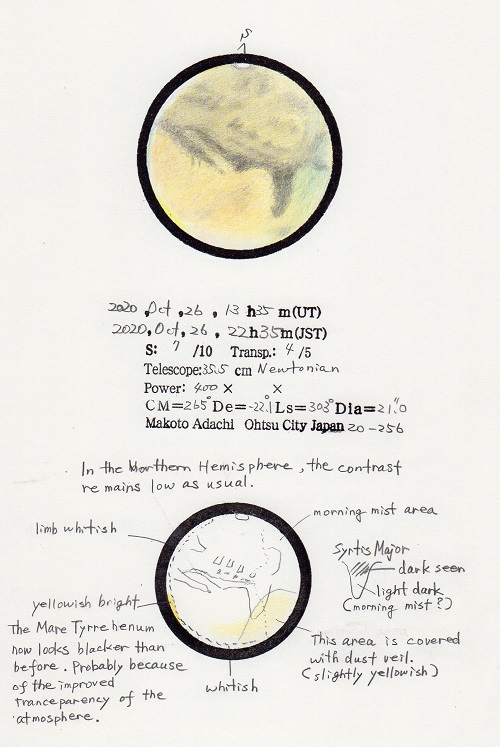 S
2020, Oct, 26, 13 h35 m(UT)
2020, Oct, 26, 22h35m(JST)
S: 7 /10 Transp.: 4 /5
Telescope:35.5 cm Newtonian
Power: 400 × ×
CM=265° De=-22.1° Ls=303° Dia=21".0
Makoto Adachi Ohtsu City Japan 20-256
In the Northern Hemisphere, the contrast
remains low as usual.
morning mist area
limb whitish
Syrtis Major
dark seen
light dark
(morning mist?)
yellowish bright
The Mare Tyrrehenum
now looks blacker than
before. Probably because
of the improved
tranceparency of the
atmosphere.
whitish
This area is covered
with dust veil.
(slightly yellowish)